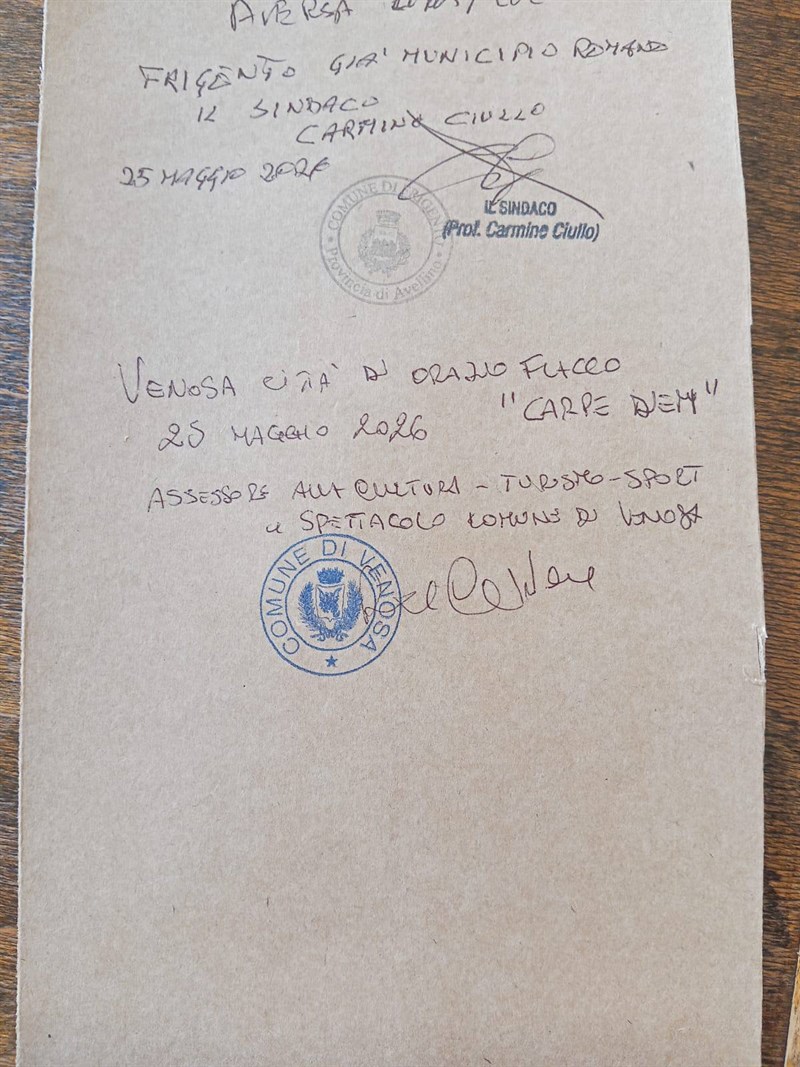 AVERSA
FRIGENTO GIA' MUNICIPIO ROMANO
IL SINDACO
CARMINE CIULLO
25 MAGGIO 2026
COMUNE DI FRIGENTO
Provincia di Avellino
IL SINDACO
(Prof. Carmine Ciullo)
VENOSA CITTA' DI ORAZIO FLACCO
"CARPE DIEM"
25 MAGGIO 2026
ASSESSORE ALLA CULTURA - TURISMO - SPORT
e SPETTACOLO COMUNE DI VENOSA
COMUNE DI VENOSA